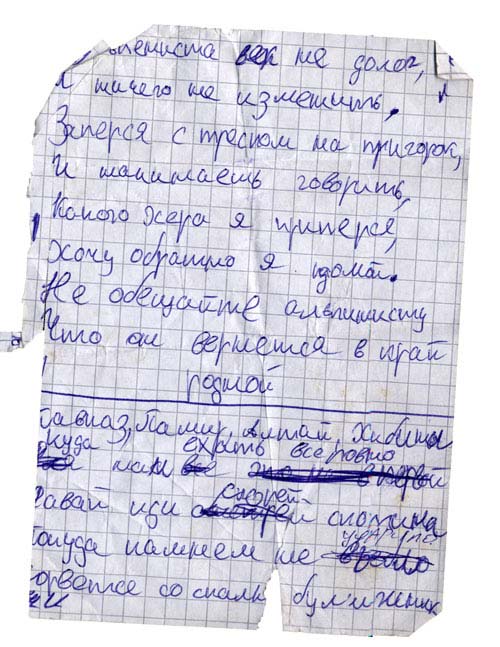 пиниста век не долог,
И ничего не изменить,
Заперся с треском на пригорок,
И начинаешь говорить,
Какого хера я приперся,
Хочу обратно я домой.
Не обещайте альпинисту
Что он вернется в край
родной
авказ, Памир, Алтай Хибины
куда, ехать все ровно
нам
скорей
Давай иди скотина
Покуда камнем не
орветсе со скалы булыжник